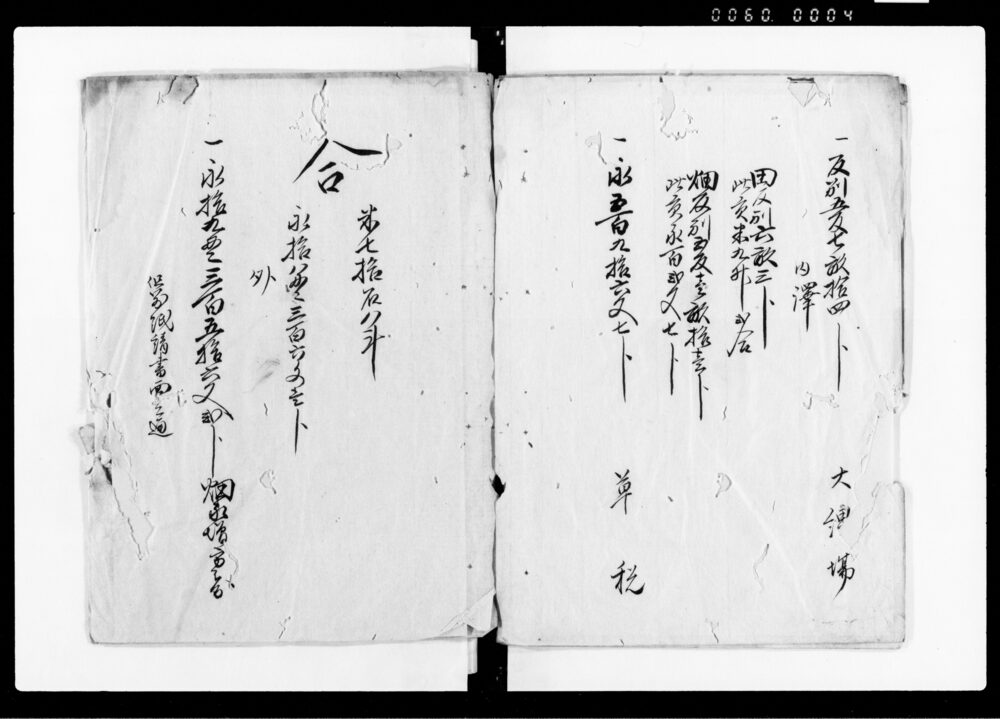 0060. 0004
一反別五反七畝拾四卜
大縄場
内澤
田反別六畝三卜
此貢米九升弐合
畑反別五反壱畝拾壱卜
此貢永百弐文七卜
一永五百九拾六文七卜
草税
米七拾石八斗
合
永拾貫三百六文壱卜
外
一永拾九貫三百五拾六文弐卜
畑永増
紙請書面之通